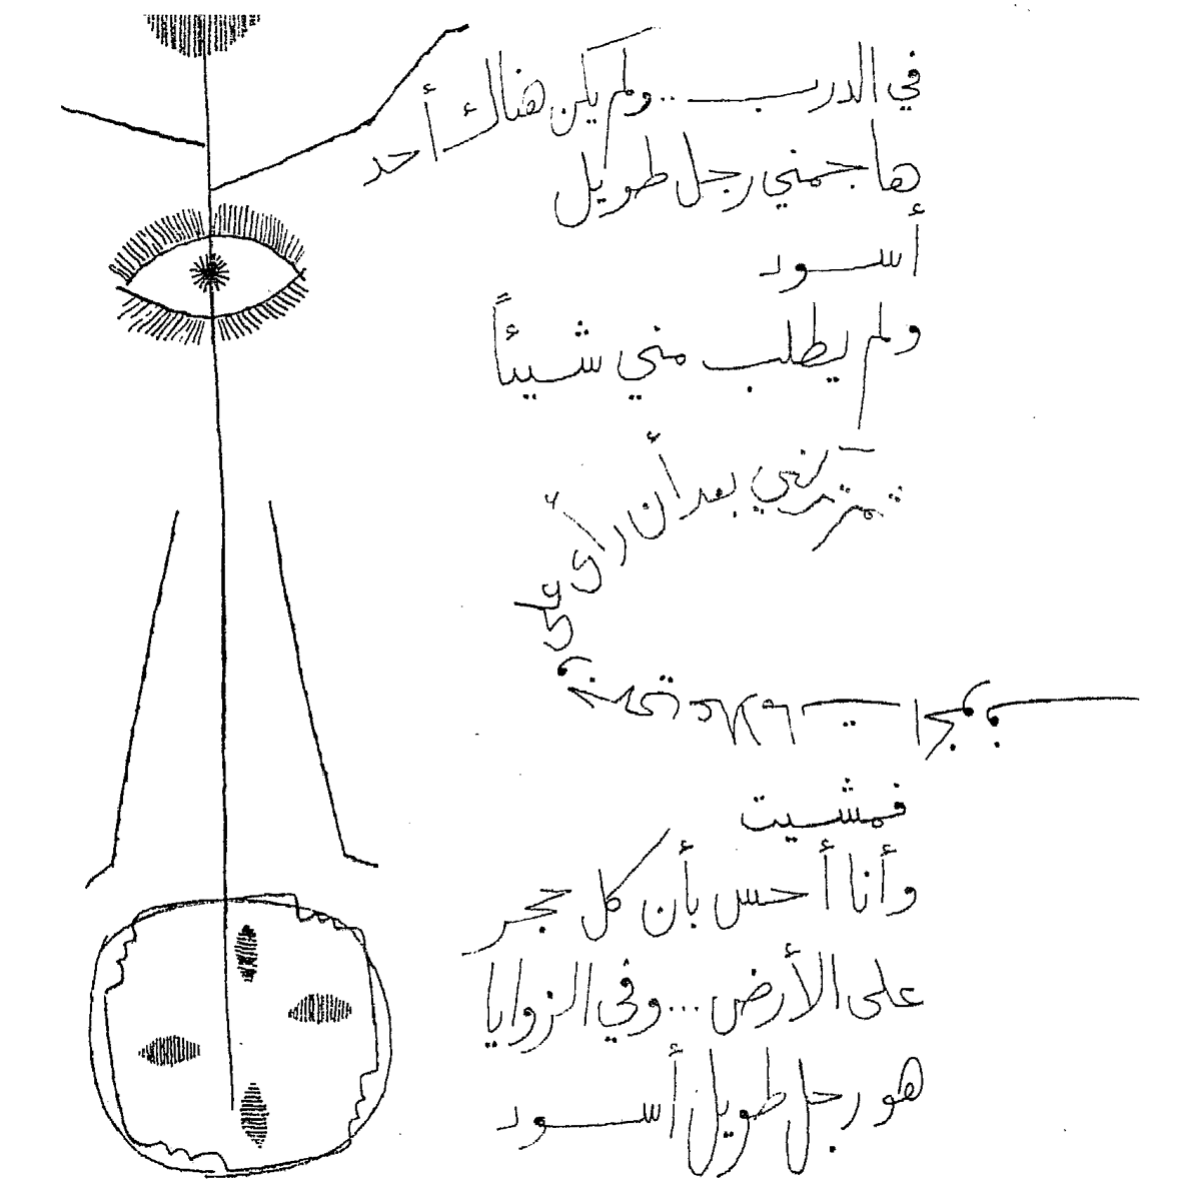 في الدرب ..ولم يكن هناك أحد
هاجمني رجل طويل
أسود
ولم يطلب مني شيئاً
ثم تركني بعد أن رأى على
فمشيت
وأنا أحس بأن كل حجر
على الأرض ...وفي الزوايا
هو رجل طويل أسود